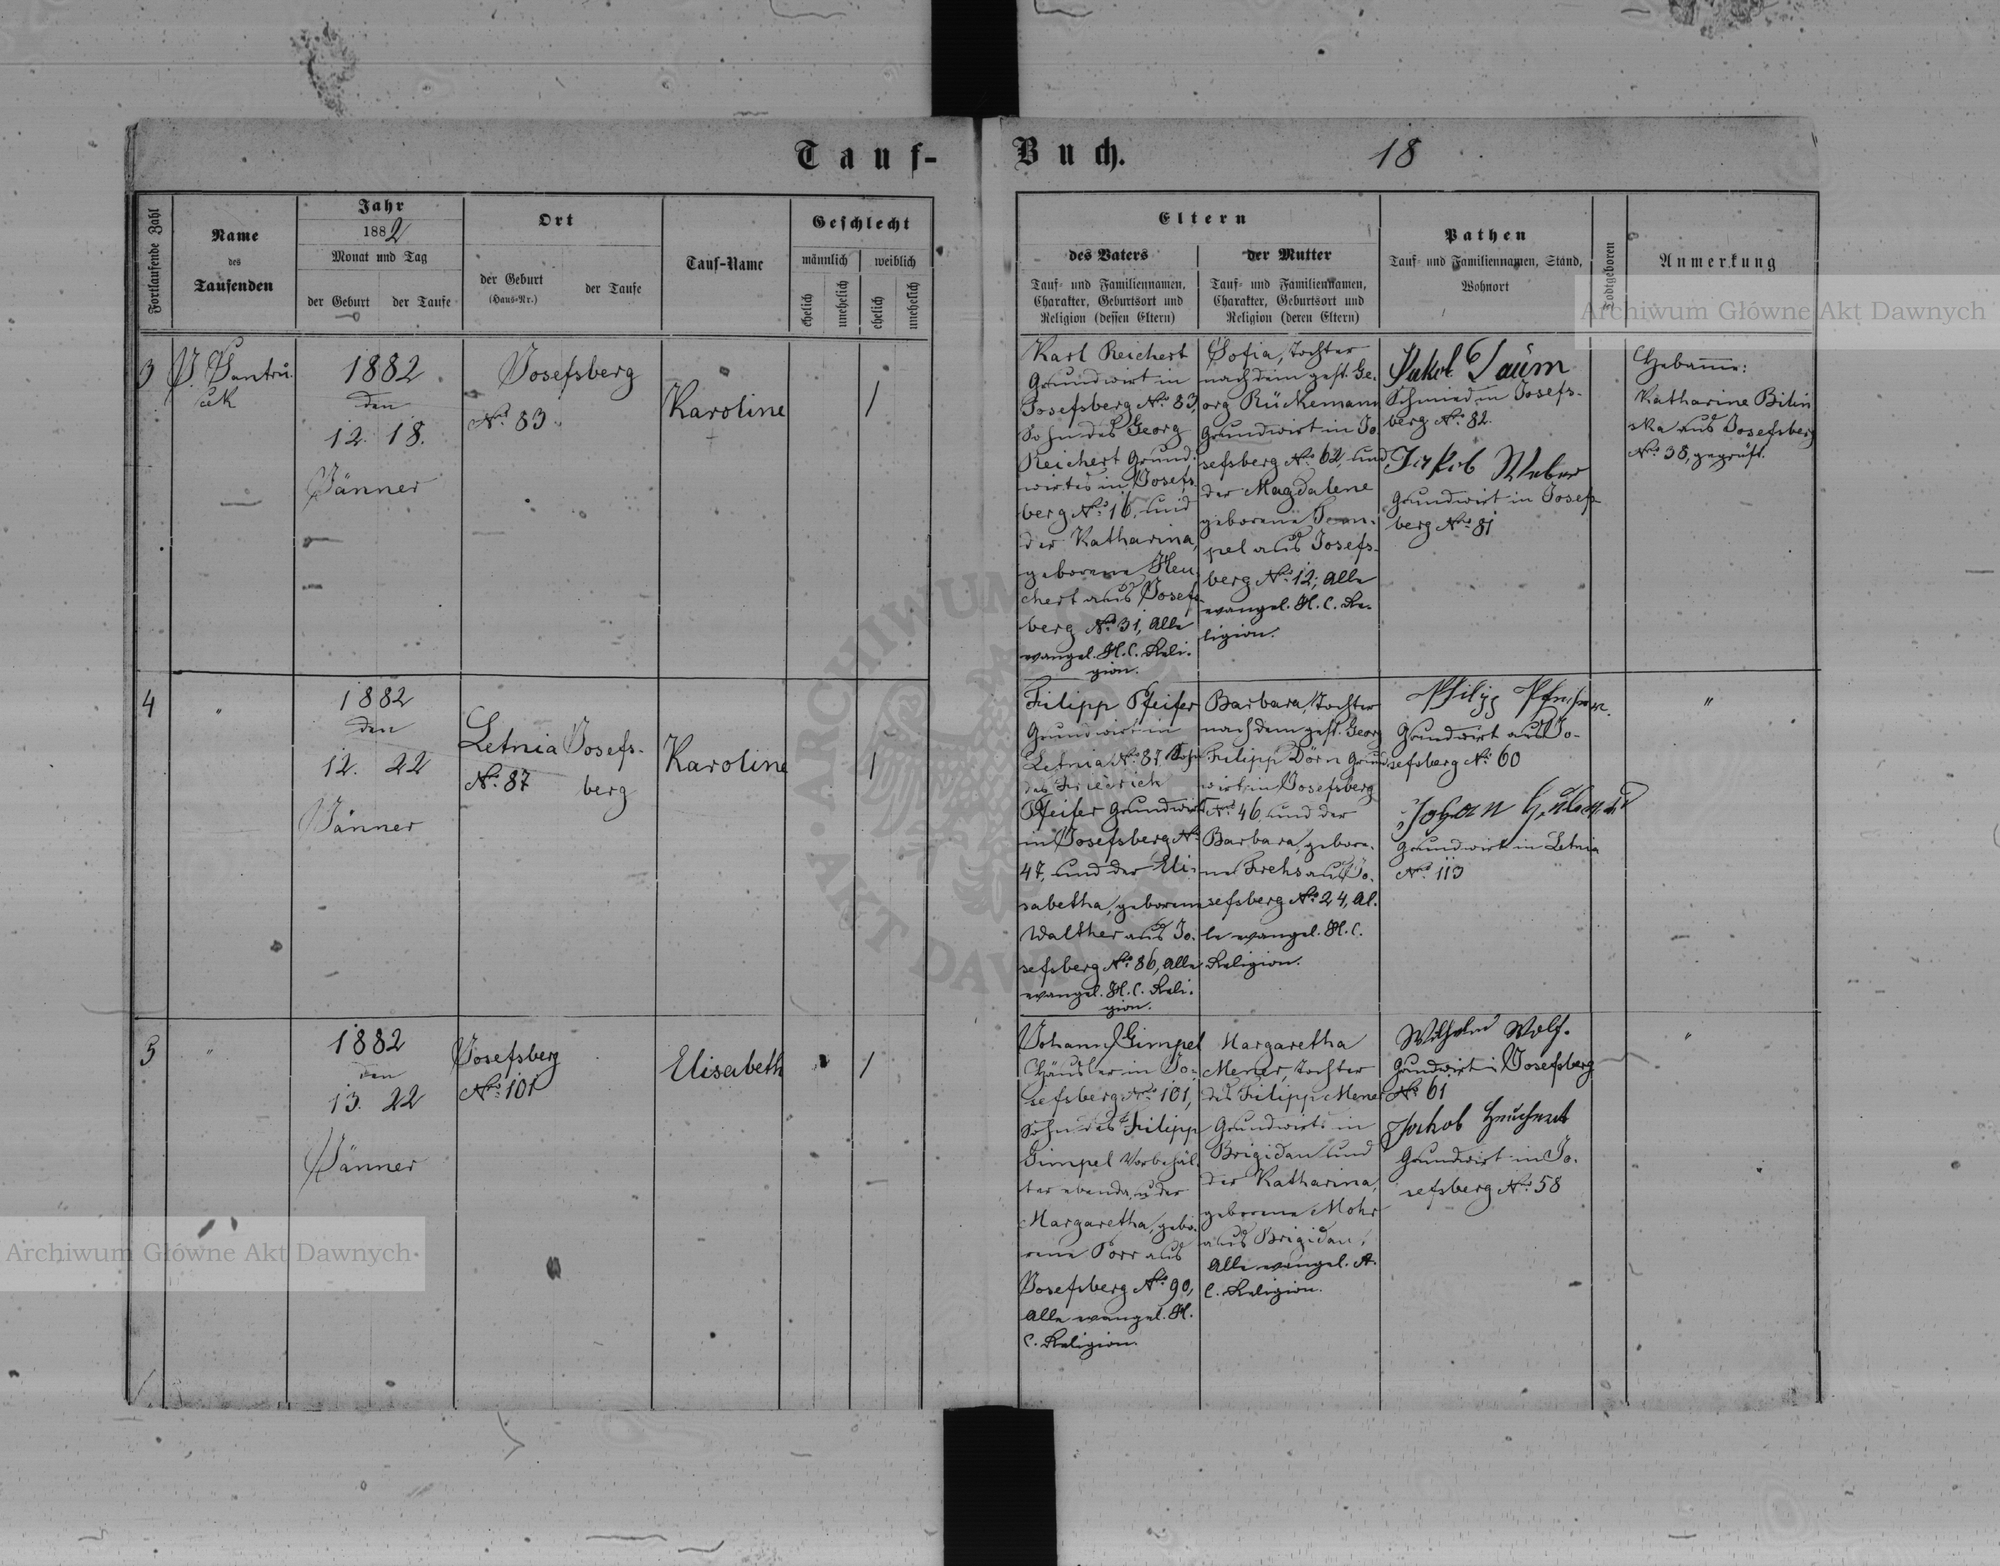 Tauf-
Buch.
18
Fortlaufende Zahl
Name
des
Taufenden
Jahr
1882
Monat und Tag
der Geburt
der Taufe
Ort
der Geburt
(Haus-Nr.)
der Taufe
Tauf-Name
Geschlecht
männlich
weiblich
ehelich
unehelich
ehelich
unehelich
Eltern
des Vaters
Tauf- und Familiennamen,
Charakter, Geburtsort und
Religion (dessen Eltern)
der Mutter
Tauf- und Familiennamen,
Charakter, Geburtsort und
Religion (deren Eltern)
Pathen
Tauf- und Familiennamen, Stand,
Wohnort
Todtgeboren
Anmerkung
Archiwum Główne Akt Dawnych
3
1882
den
12. 18.
Jänner
Josefsberg
No. 83.
Karoline
1
Karl Reichert
Grundwirt in
Josefsberg No. 83,
Sohn des Georg
Reichert Grund-
wirtes in Josefs-
berg No. 16, und
der Katharina,
geborene Heu-
chert aus Josefs-
berg No. 31, Alle
evangel. H. C. Reli-
gion.
Sofia, Tochter
nach dem gest. Ge-
org Rückemann
Grundwirt in Jo-
sefsberg No. 62, und
der Magdalene
geborene
pel aus Josefs-
berg No. 12; Alle
evangel. H. C. Re-
ligion.
Jakob
Schmied in Josefs-
berg No. 82.
Jakob Weber
Grundwirt in Josefs-
berg No. 81
Hebamme:
Katharine Bilin
ska aus Josefsberg
No. 38, geprüft.
4
"
1882
den
12. 22
Jänner
Letnia
No. 87
Josefs-
berg
Karoline
1
Filipp Pfeifer
Grundwirt in
Letnia No. 87, Sohn
des Friedrich
Pfeifer Grundwirt
in Josefsberg No.
47, und der Eli-
sabetha, geborene
Walther aus Jo-
sefsberg No. 86, Alle
evangel. H. C. Reli-
gion.
Barbara, Tochter
nach dem gest. Georg
Filipp Dörn Grund
wirt in Josefsberg
No. 46, und der
Barbara, gebore-
ne Frehs aus Jo-
sefsberg No. 24, Al-
le evangel. H. C.
Religion.
Philipp
Grundwirt aus Jo-
sefsberg No. 60
Johan
Grundwirt in Letnia
No. 113
"
5
"
1882
den
13. 22
Jänner
Josefsberg
No. 101
Elisabeth
1
Johann Gimpel
Häusler in Jo-
sefsberg No. 101,
Sohn des Filipp
Gimpel Vorbehäl-
ter ebenda, u. der
Margaretha, gebo-
rene Porr aus
Josefsberg No. 90,
Alle evangel. H.
C. Religion.
Margaretha
Mener, Tochter
des Filipp Mener
Grundwirts in
Brigidau und
der Katharina,
geborene Mohr
aus Brigidau,
Alle evangel. A.
C. Religion.
Wilhelm Wolf.
Grundwirt in Josefsberg
No. 61
Jakob Heuchert
Grundwirt in Jo-
sefsberg No. 58
"
Archiwum Główne Akt Dawnych